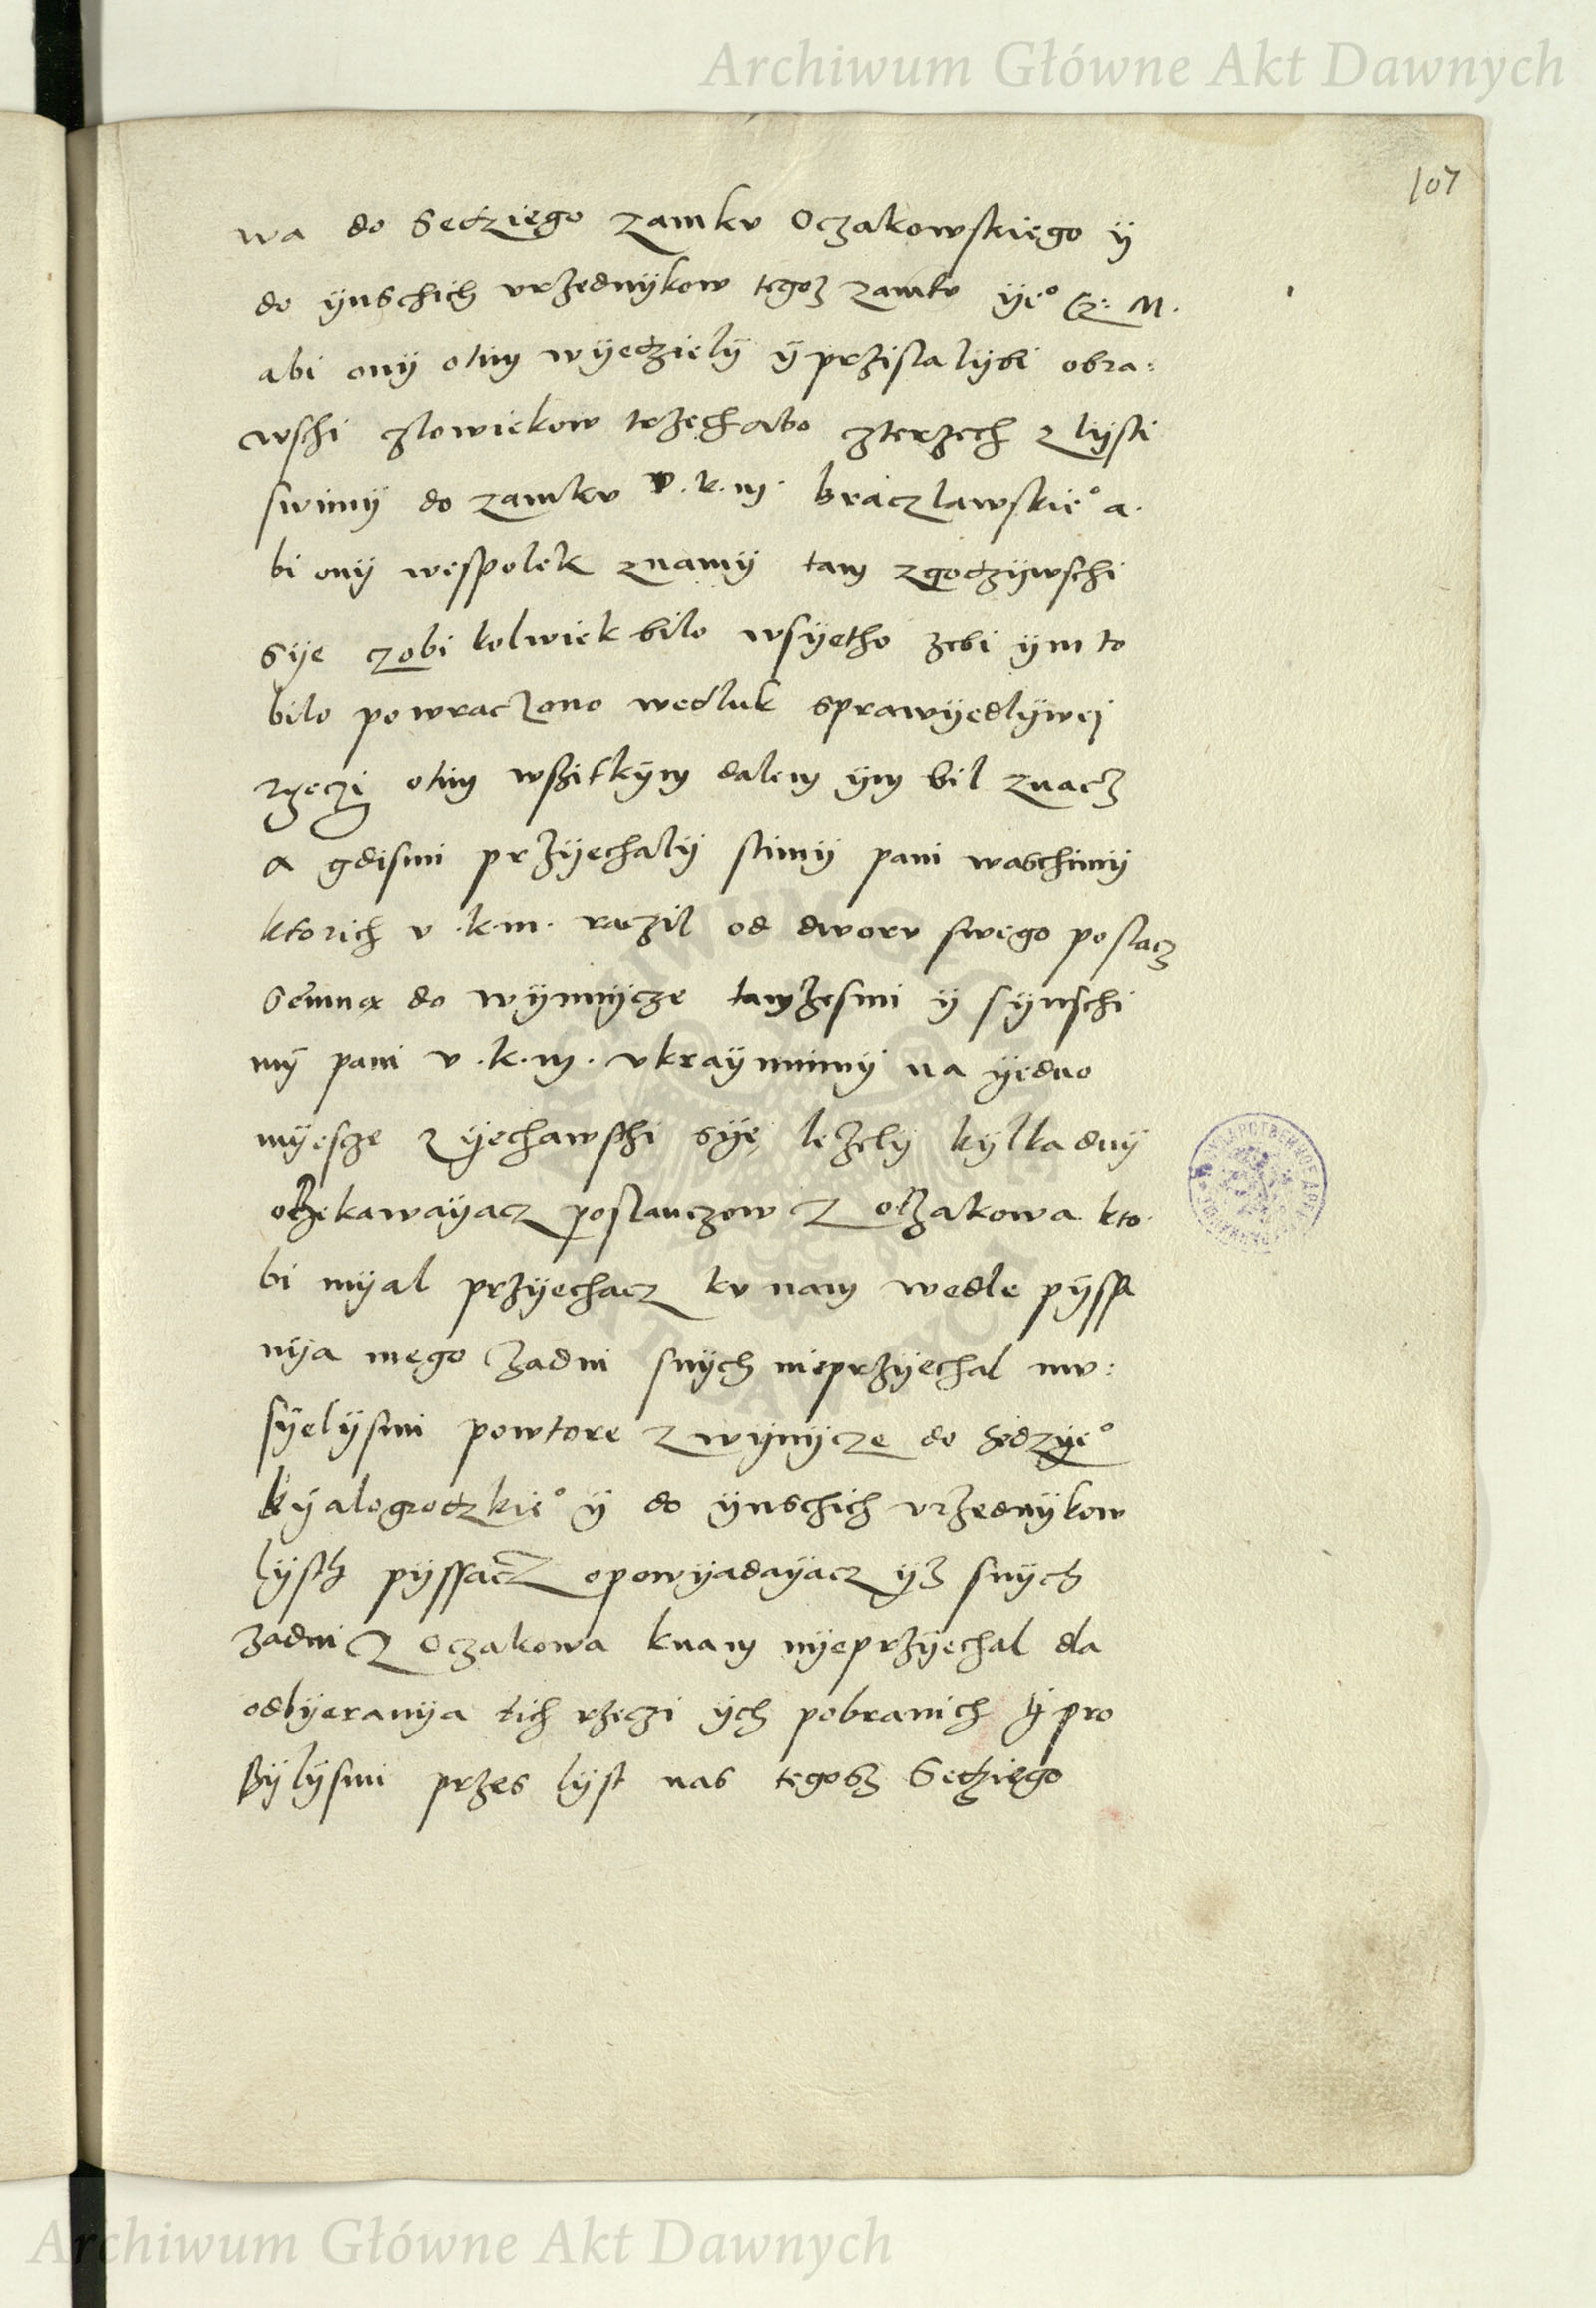 Archiwum Główne Akt Dawnych
107
wa do Sedziego zamku Oczakowskiego ÿ
do ÿnschich vrzednÿkow tegoz zamku ÿe° Cz: M.
abi onÿ otim wÿedzielÿ ÿ przislalÿbi obra:
wschi czlowiekow trzech abo czterzech z lÿsti
swimÿ do zamku v.k.m. braczlawskie° a.
bi onÿ wespolek znamÿ tam zgodzÿwschi
sÿe czobi kolwiek bilo wsÿetho zebi ÿm to
bilo powraczono wedluk sprawÿedlÿwej
rzeczi otim wszitkÿm dalem ÿm bil znacz
a gdismi przÿechalÿ stimÿ pani waschimÿ
ktorich v.k.m. raczil od dworu swego poslacz
do wÿnnÿcze tamzesmi ÿ sÿnschi
mÿ pani v.k.m. vkraÿnnimÿ na ÿedno
mÿescze zÿechawschi sÿe lezelÿ kÿlka dnÿ
oczekawaÿacz poslanczow z oczakowa kto.
bi mÿal przÿechacz ku nam wedle pÿssa
nÿa mego zadni snÿch nieprzÿechal mu:
sÿelÿsmi powtore z wÿnÿcze do Sedzÿe°
bÿalogrodzkie° ÿ do ÿnschich vrzednÿkow
lÿsth pÿssacz opowÿadaÿacz ÿz snÿch
zadni z Oczakowa knam nÿeprzÿechal dla
odbÿeranÿa tich rzeczi ÿch pobranich ÿ pro
sÿlÿsmi przes lÿst nas tegosz Sedziego
Archiwum Główne Akt Dawnych